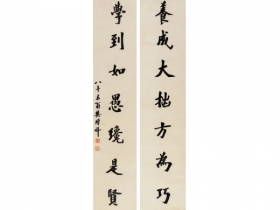 養成大拙方為巧
學到如愚纔是賢
八十五翁樊增祥